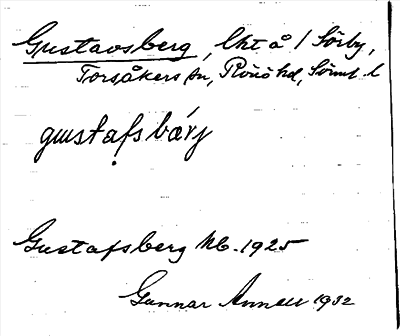 Gustavsberg, lht å / Sörby,
Torsåkers sn, Rönö hd, Sörml. l
gɯstafsbærj
Gustafsberg Jb. 1925
Gunnar Annell 1932